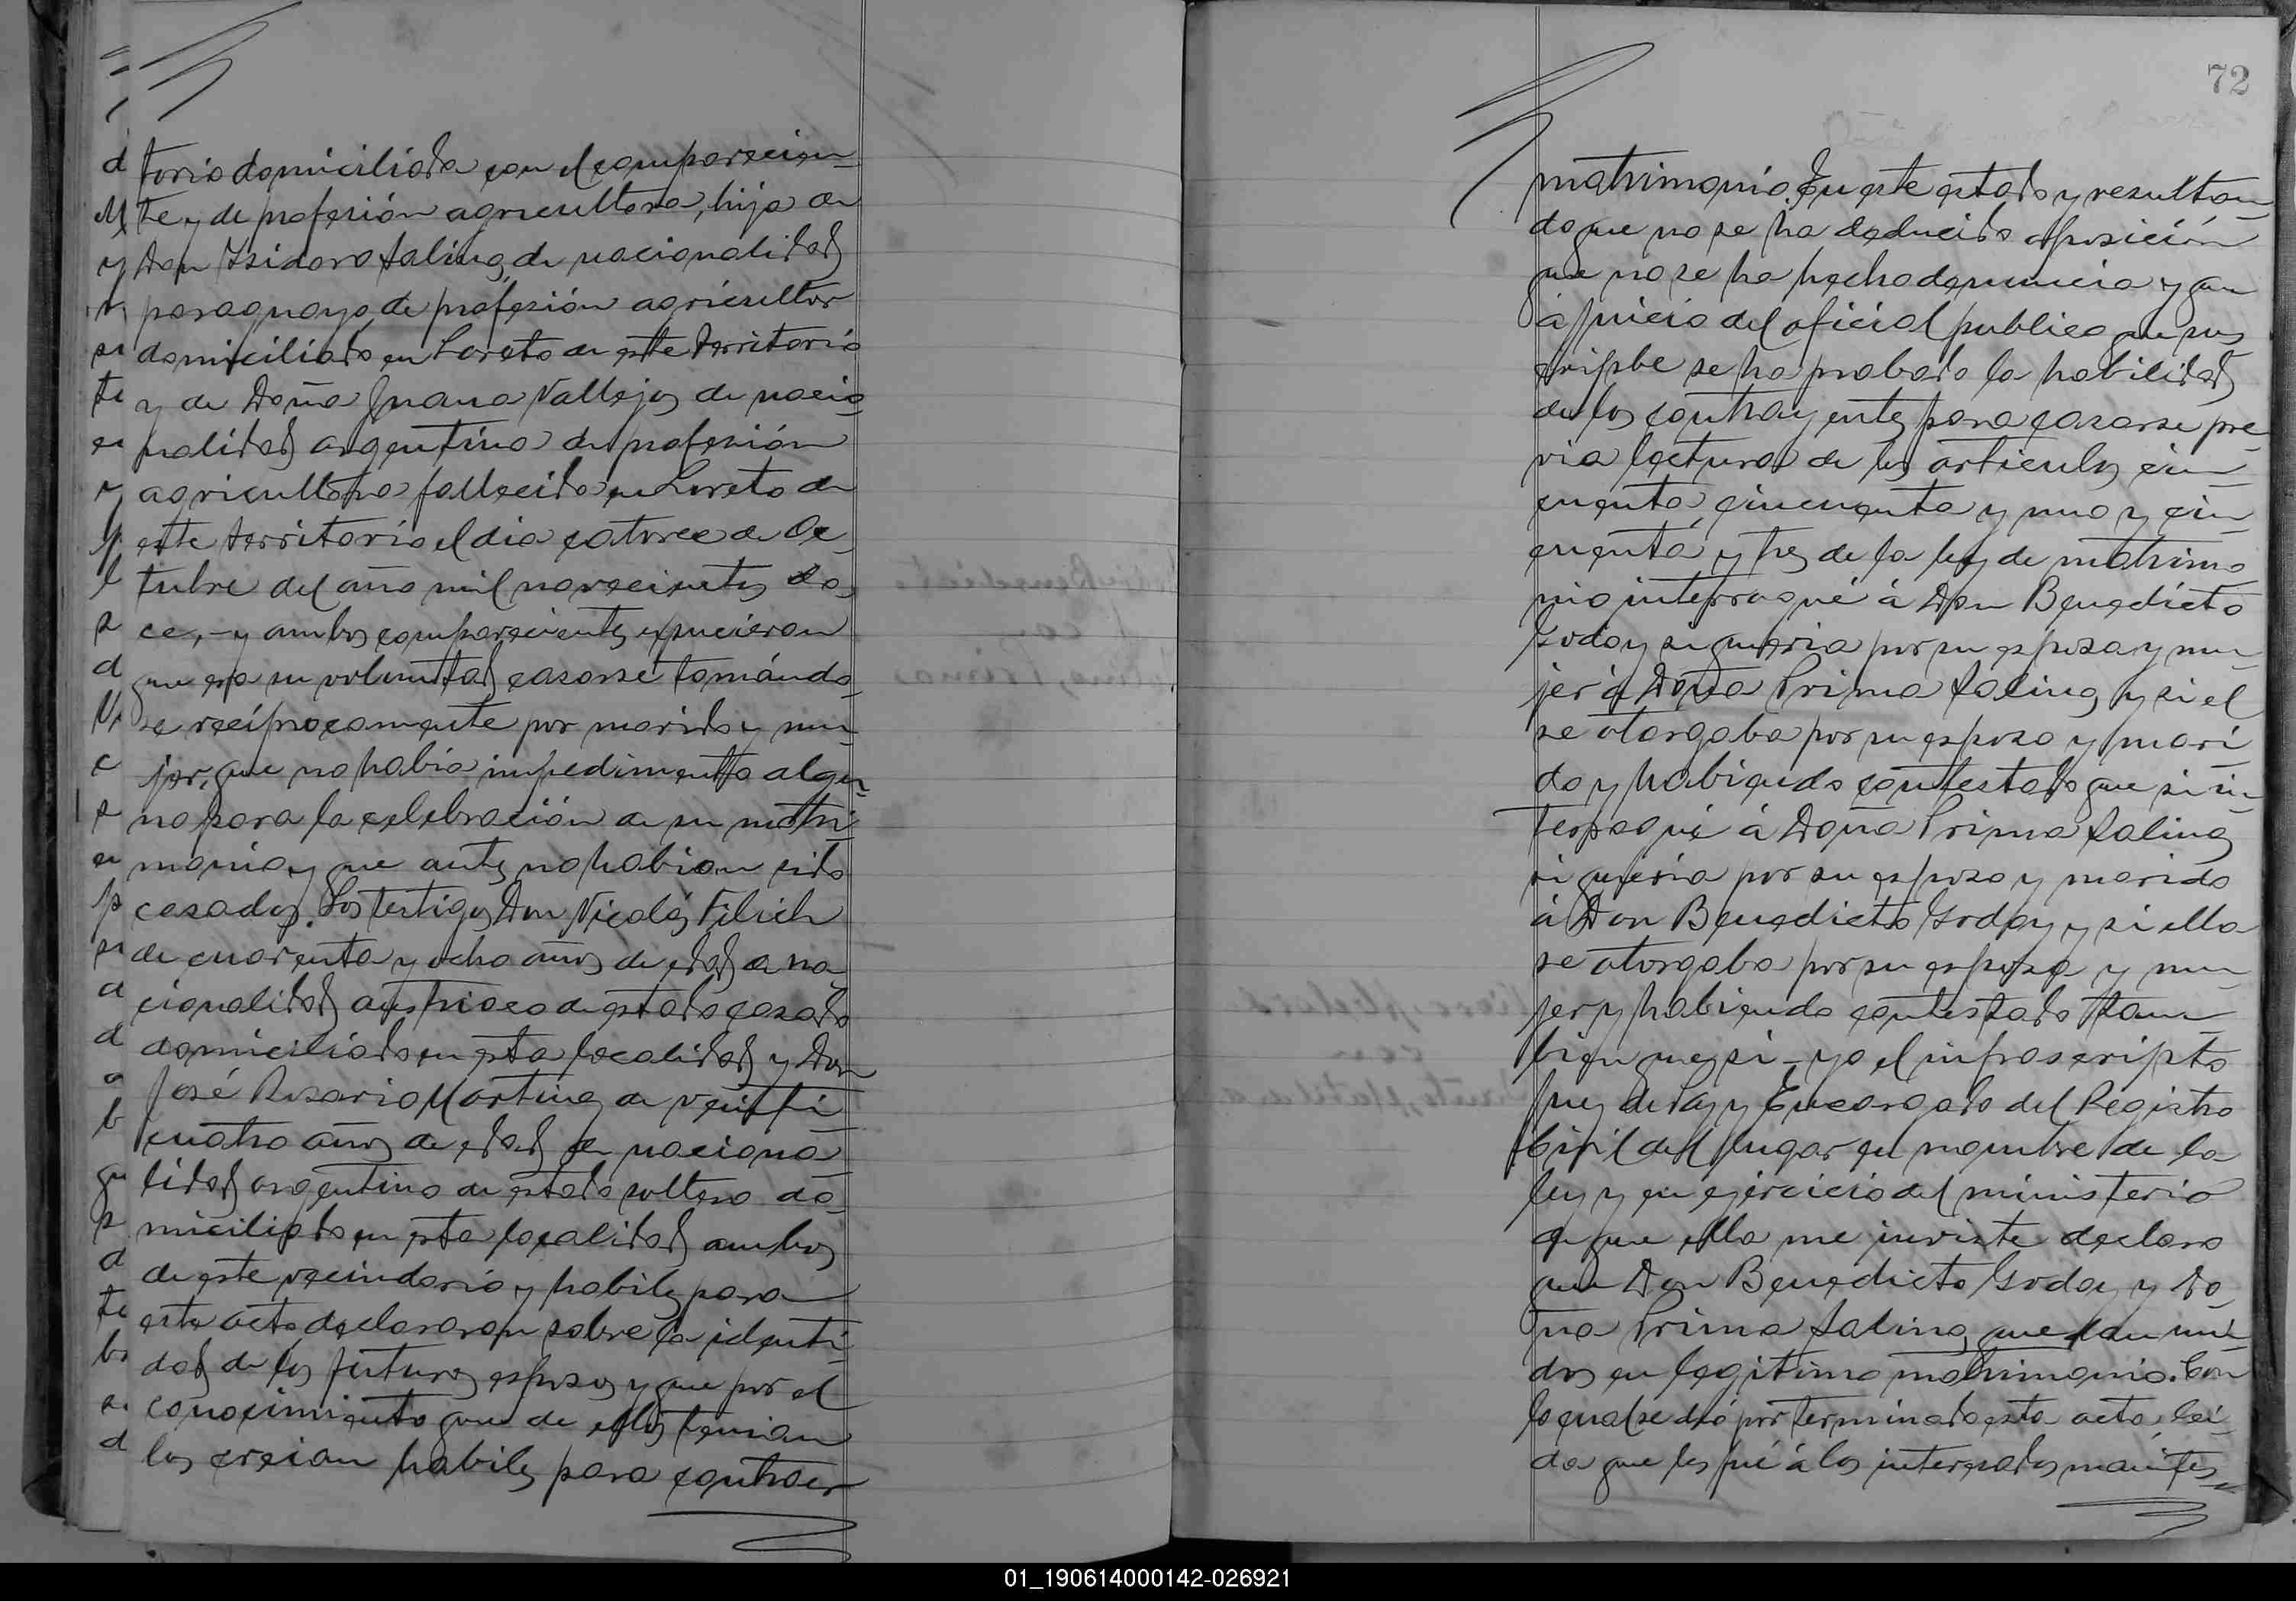 torio domiciliada con el comparecien-
te y de profesión agricultora, hija de
Don Isidoro Salinas, de nacionalidad
paraguayo, de profesión agricultor
domiciliado en Loreto de este territorio
y de Doña Juana Vallejos de nacio
nalidad argentina de profesión
agricultora fallecida en Loreto de
este territorio el dia catorce de Oc-
tubre del año mil novecientos do-
ce, - y ambos comparecientes expucieron
que era su voluntad casarse tomándo-
se recíprocamente por marido y mu-
jer, que no habia impedimento algu-
no para la celebración de su matri-
monio y que antes no habian sido
casados. Los testigos Don Nicolás Filich
de cuarenta y ocho años de edad de na-
cionalidad austriaco de estado casado
domiciliado en esta localidad y Don
José Rosario Martinez de veinti
cuatro años de edad de naciona-
lidad argentino de estado soltero do-
miciliado en esta localidad ambos
de este vecindario y habiles para
este acto declararon sobre la identi-
dad de los futuros esposos y que por el
conocimiento que de ellos tenian
los creian habiles para contraer
72
matrimonio. En este estado y resultan-
do que no se ha deducido oposición
que no se ha hecho denuncia y que
á juicio del oficial publico que sus
cripbe se ha probado la habilidad
de los contrayentes para casarse pre-
via lectura de los articulos cin-
cuenta, cincuenta y uno y cin-
cuenta y tres de la ley de matrimo
nio interrogué á Don Benedicto
Godoy si queria por su esposa y mu-
jer á Doña Prima Salinas y si el
se otorgaba por su esposo y mari-
do y habiendo contestado que si in-
terrogué á Doña Prima Salinas
si queria por su esposo y marido
á Don Benedicto Godoy y si ella
se otorgaba por su esposa y mu-
jer y habiendo contestado tam-
bien que si - yo el infrascripto
Juez de Paz y Encargado del Registro
Civil del lugar en nombre de la
ley y en ejercicio del ministerio
de que ella me inviste declaro
que Don Benedicto Godoy y Do-
ña Prima Salinas quedan uni-
dos en legitimo matrimonio. Con
lo cual se dió por terminado este acto, lei-
da que les fué á los interesados manifes-
01_190614000142-026921